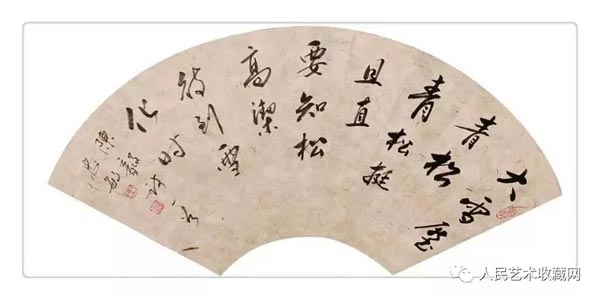 大雪压
青松
青松挺
且直
要知松
高潔
待到雪
化时
陈毅
人民艺术收藏网